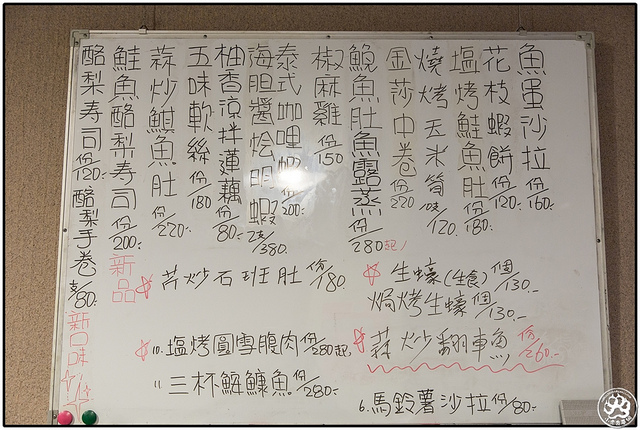 魚蛋沙拉 份/160.
花枝蝦餅 份/120.
塩烤鮭魚肚 份/180.
燒烤玉米筍 味/120.
金莎中卷 份/270
鮸魚肚魚露蒸 份/280起/
椒麻雞 份/150
泰式咖哩蝦 份/200.
海胆醬燴明蝦 2支/380.
柚香涼拌蓮藕 份/80.
五味軟絲 份/180
蒜炒鯕魚肚 份/220.
鮭魚酪梨壽司 份/200. 新品
酪梨寿司 份/120. 酪梨手卷 支/80. 新口味
芹炒石班肚 份/180
生蠔(生食) 個/130.-
焗烤生蠔 個/130.-
10. 塩烤圓雪腹肉 份/280起
蒜炒翻車魚 份/260.-
11 三杯解鱇魚 份/280.-
6. 馬鈴薯沙拉 份/80.-